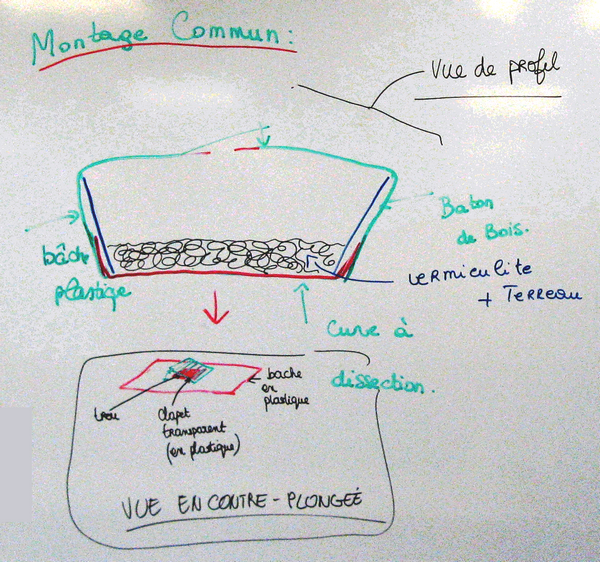 Montage Commun :
Vue de profil
Baton
de Bois.
bâche
plastique
vermiculite
+ Terreau
Cuve à
dissection.
bache
en
plastique
trou
Clapet
transparent
(en plastique)
VUE EN CONTRE-PLONGEÉ